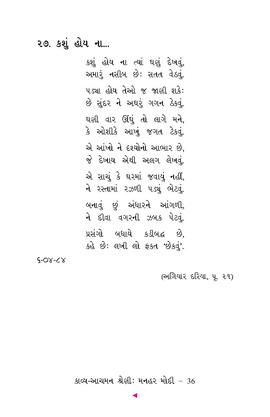 ૨૭. કશું હોય ના...
કશું હોય ના ત્યાં ઘણું દેખવું,
અમારું નસીબ છેઃ સતત વેઠવું.
પડ્યા હોય તેઓ જ જાણી શકેઃ
છે સુંદર ને અઘરું ગગન ટેકવું.
ઘણી વાર ઊંઘું તો લાગે મને,
કે ઓશીકે આખું જગત ટેકવું.
એ આંખો ને દશ્યોનો આભાર છે,
જે દેખાય એથી અલગ લેખવું.
એ સાચું કે ઘરમાં જવાયું નહીં,
ને રસ્તામાં રઝળી પડ્યું ભેટવું.
બનાવું છું અંધારને આંગળી,
ને દીવા વગરની ઝબક પેટવું.
પ્રસંગો બધાયે કડીબદ્ધ છે,
કહે છેઃ લખી લો ફક્ત 'છેકવું'.
૬-૦૪-૮૪
(અગિયાર દરિયા, પૃ. ૨૧)
કાવ્ય-આચમન શ્રેણીઃ મનહર મોદી – 36